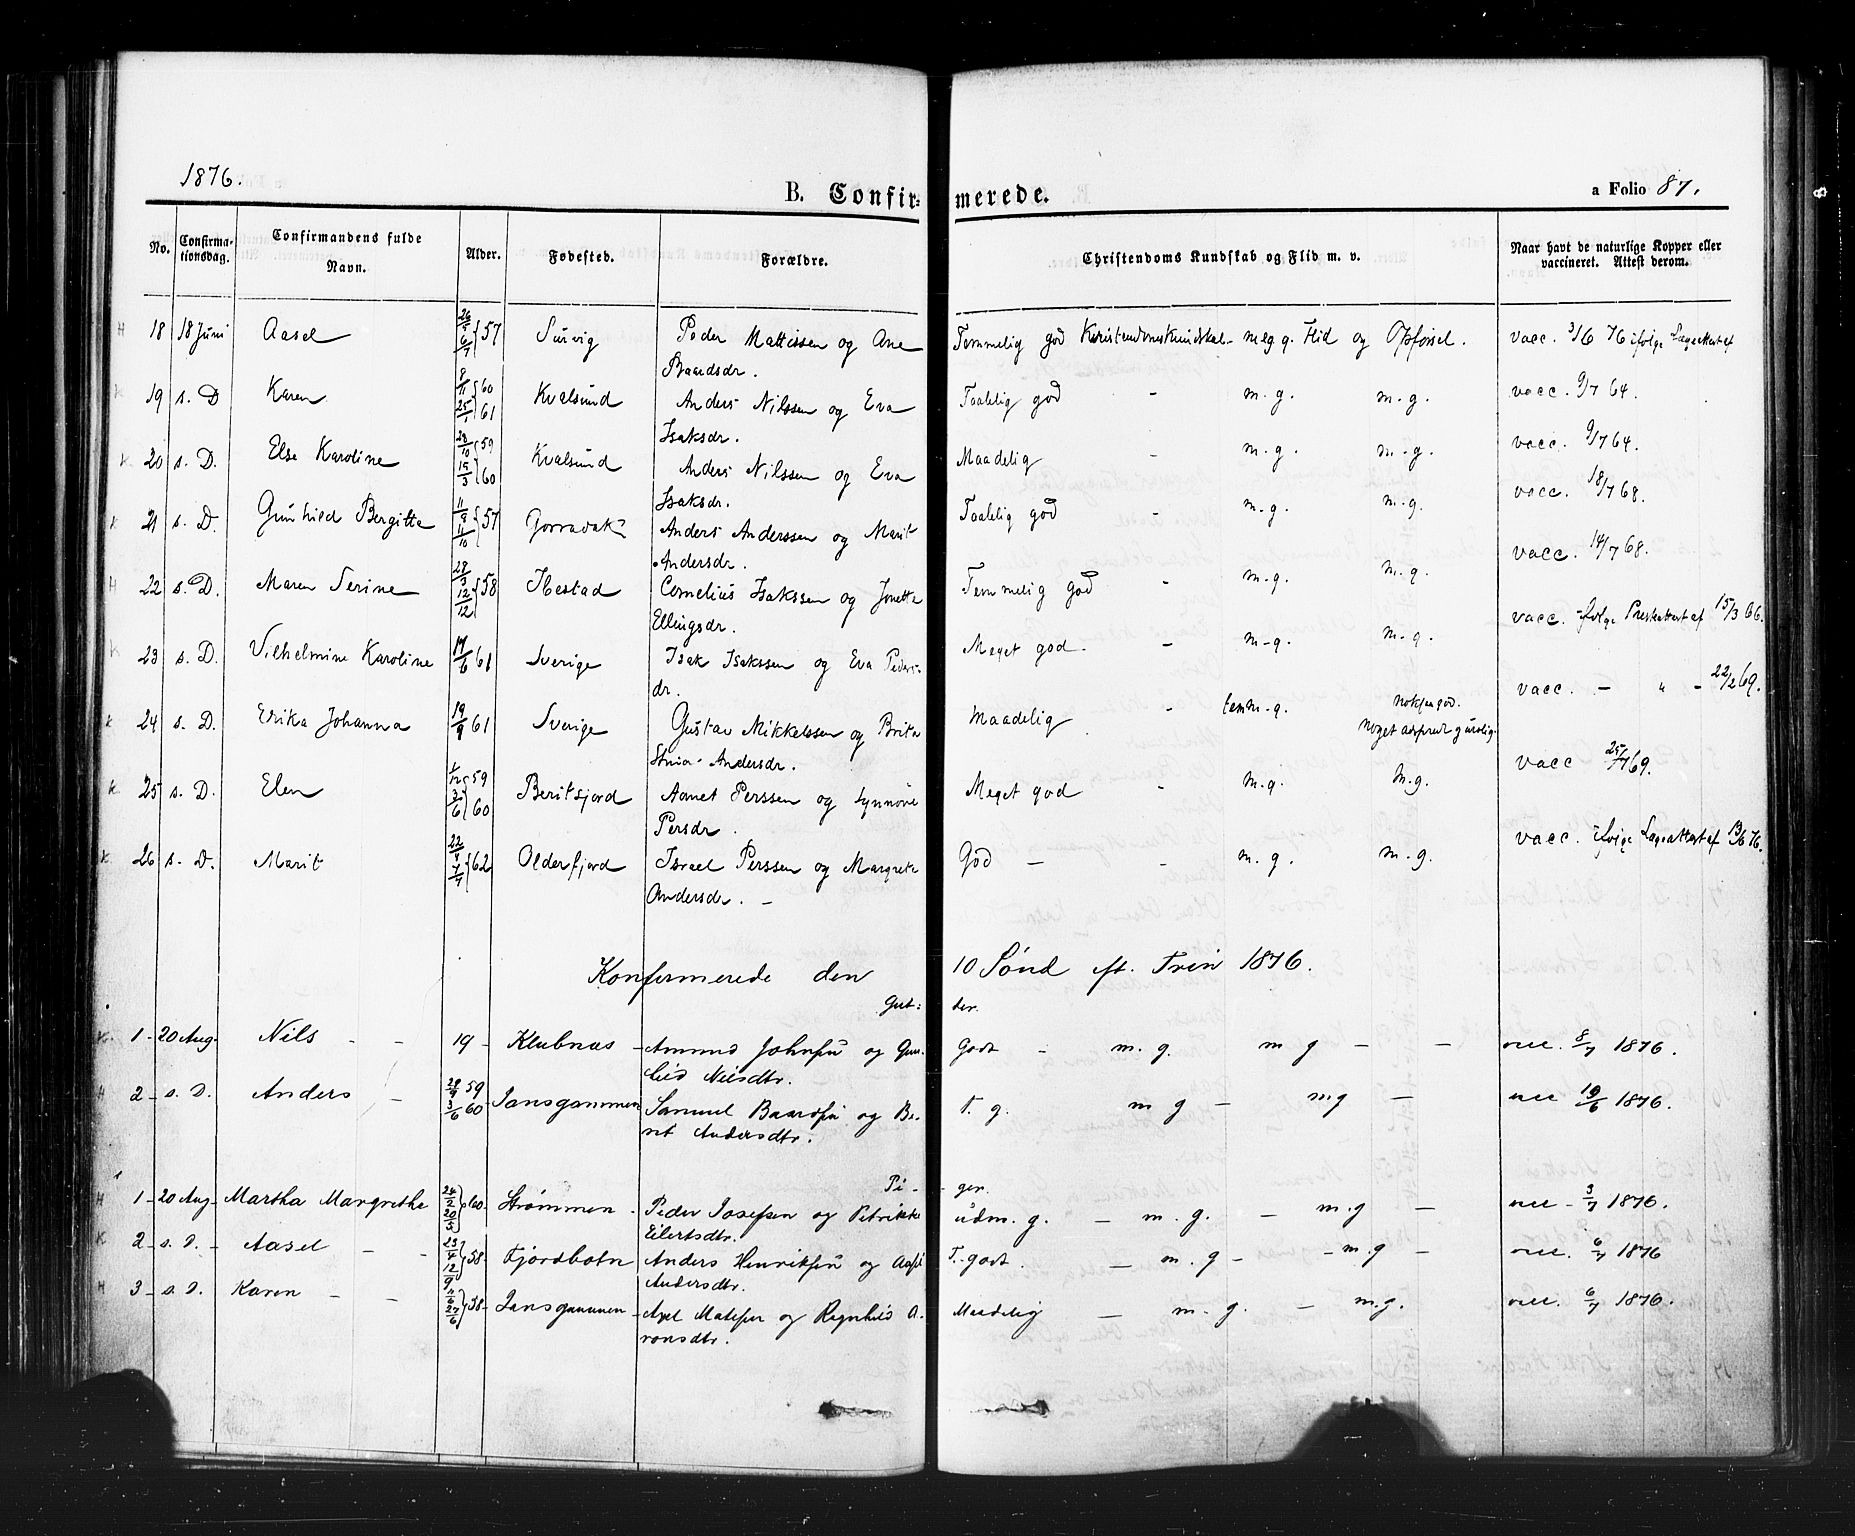 1876.
B. Confirmerede.
a Folio 87.
No. Confirmationsdag. Confirmandens fulde Navn. Alder. Fødested. Forældre. Christendoms Kundskab og Flid m. v. Naar havt de naturlige Kopper eller vaccineret. Attest derom.
18 18 Juni Aasel 26/5 6/7 } 57 Survig Peder Mattissen og Ane Temmelig god Kristendomskundskab meg g. Flid og Opførsel. vacc. 3/6 76 ifølge Lægeattest af
Baardsdr.
19 s. D Karen 8/11 60 25/1 61 Kvalsund Anders Nilssen og Eva Taalelig god - m. g. m. g. vacc. 9/7 64.
Isaksdr.
20 s. D. Else Karoline 28/10 59 15/3 60 Kvalsund Anders Nilssen og Eva Maadelig - m. g. m. g. vacc. 9/7 64.
Isaksdr.
21 s. D. Gunhild Bergitte 11/9 11/10 } 57 Anders Anderssen og Marit Taalelig god - m. g. m. g. vacc. 18/7 68.
Andersdr.
22 s. D. Maren Serine 28/3 12/12 } 58 Ibestad Cornelius Isakssen og Jonetta Temmelig god - m. g. m. g. vacc. 14/7 68.
Ellingsdr.
23 s. D. Vilhelmine Karoline 17/6 61 Sverige Isak Isakssen og Eva Peders- Meget god. - m. g. m. g. vacc. ifølge Presteattest af 15/3 66.
dr.
24 s. D. Erika Johanna 19/9 61 Sverige Gustav Mikkelssen og Brita Maadelig - tem m. g. nokfor god. vacc. — " — 22/2 69.
Stina Andersdr. noget
25 s. D. Elen 1/12 59 3/6 60 Beritsfjord Aamet Perssen og Synnøve Meget god - m. g. m. g. vacc 25/7 69.
Persdr.
26 s. D. Marit 22/4 7/7 } 62 Olderfjord Israel Perssen og Margrete God — - m. g. m. g. vacc. ifølge Lægeattest af 13/6 76.
Andersdr. —
Konfirmerede den 10 Sønd eft. Trin 1876.
Gut: ter.
1 - 20 Aug. Nils - - 19 - Klubnæs - Ammund Johnsen og Gun- Godt - m. g. m g — — vacc. 8/7 1876.
hild Nilsdtr.
2 - s. D. Anders - 28/9 59 3/6 60 - Jansgammen Samuel Baardsen og Be- T. g. m g — m g — vacc 10/6 1876.
rit Andersdtr.
Pi- gen.
1 - 20 Aug - Martha Margrethe 26/2 20/5 } 60 - Strømmen - Peder Josefsen og Petrikke udm. g. — m. g. — m. g — vacc - 3/7 1876.
Eilertsdtr.
2 - s. D. - Aasel - - 23/4 12/9 } 58 - Fjordbotn Anders Henriksen og Aasel T. godt. — m. g - - m. g — vacc. 6/7 1876
Andersdtr.
3 - s. D. Karen - - 11/6 27/6 } 58 - Jansgammen - Axel Matisen og Ragnhild A- Maadelig — m. g. — m. g. — vacc. 6/7 1876.
ronsdtr.